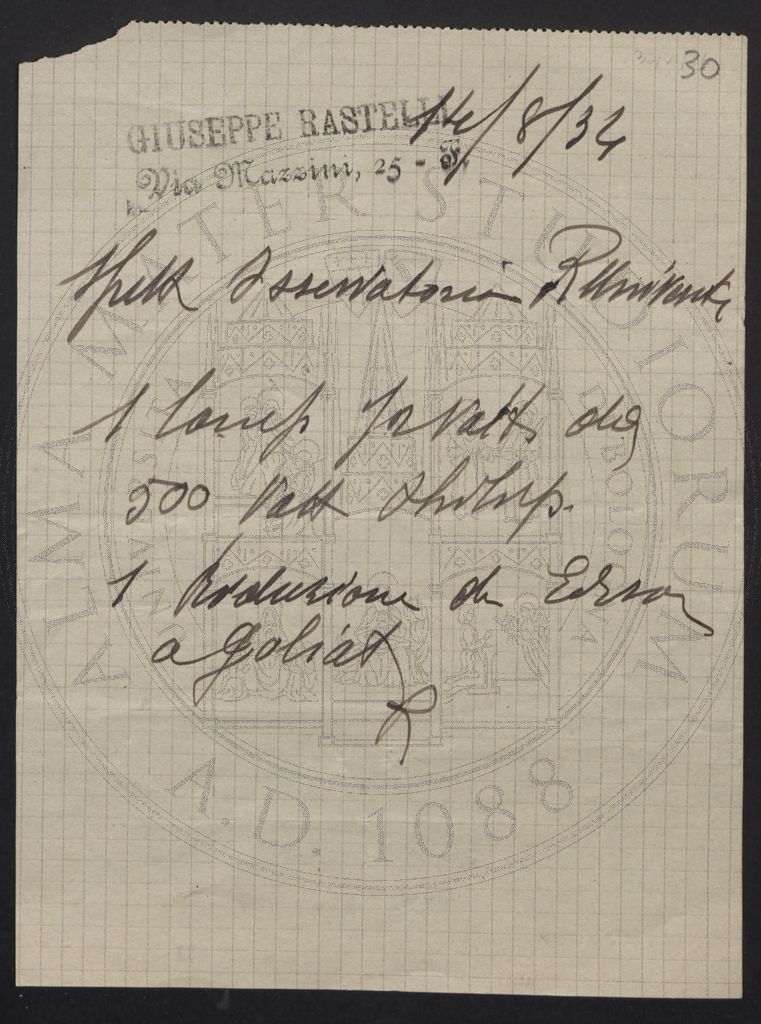 30
GIUSEPPE RASTELLI 14/8/34
Via Mazzini, 25 -
Spett Osservatorio R Università
1 lamp 1/2 Watt da
500 Watt Philips.
1 Riduzione da Edison
a Goliat
R
ALMA MATER STUDIORUM
A.D. 1088